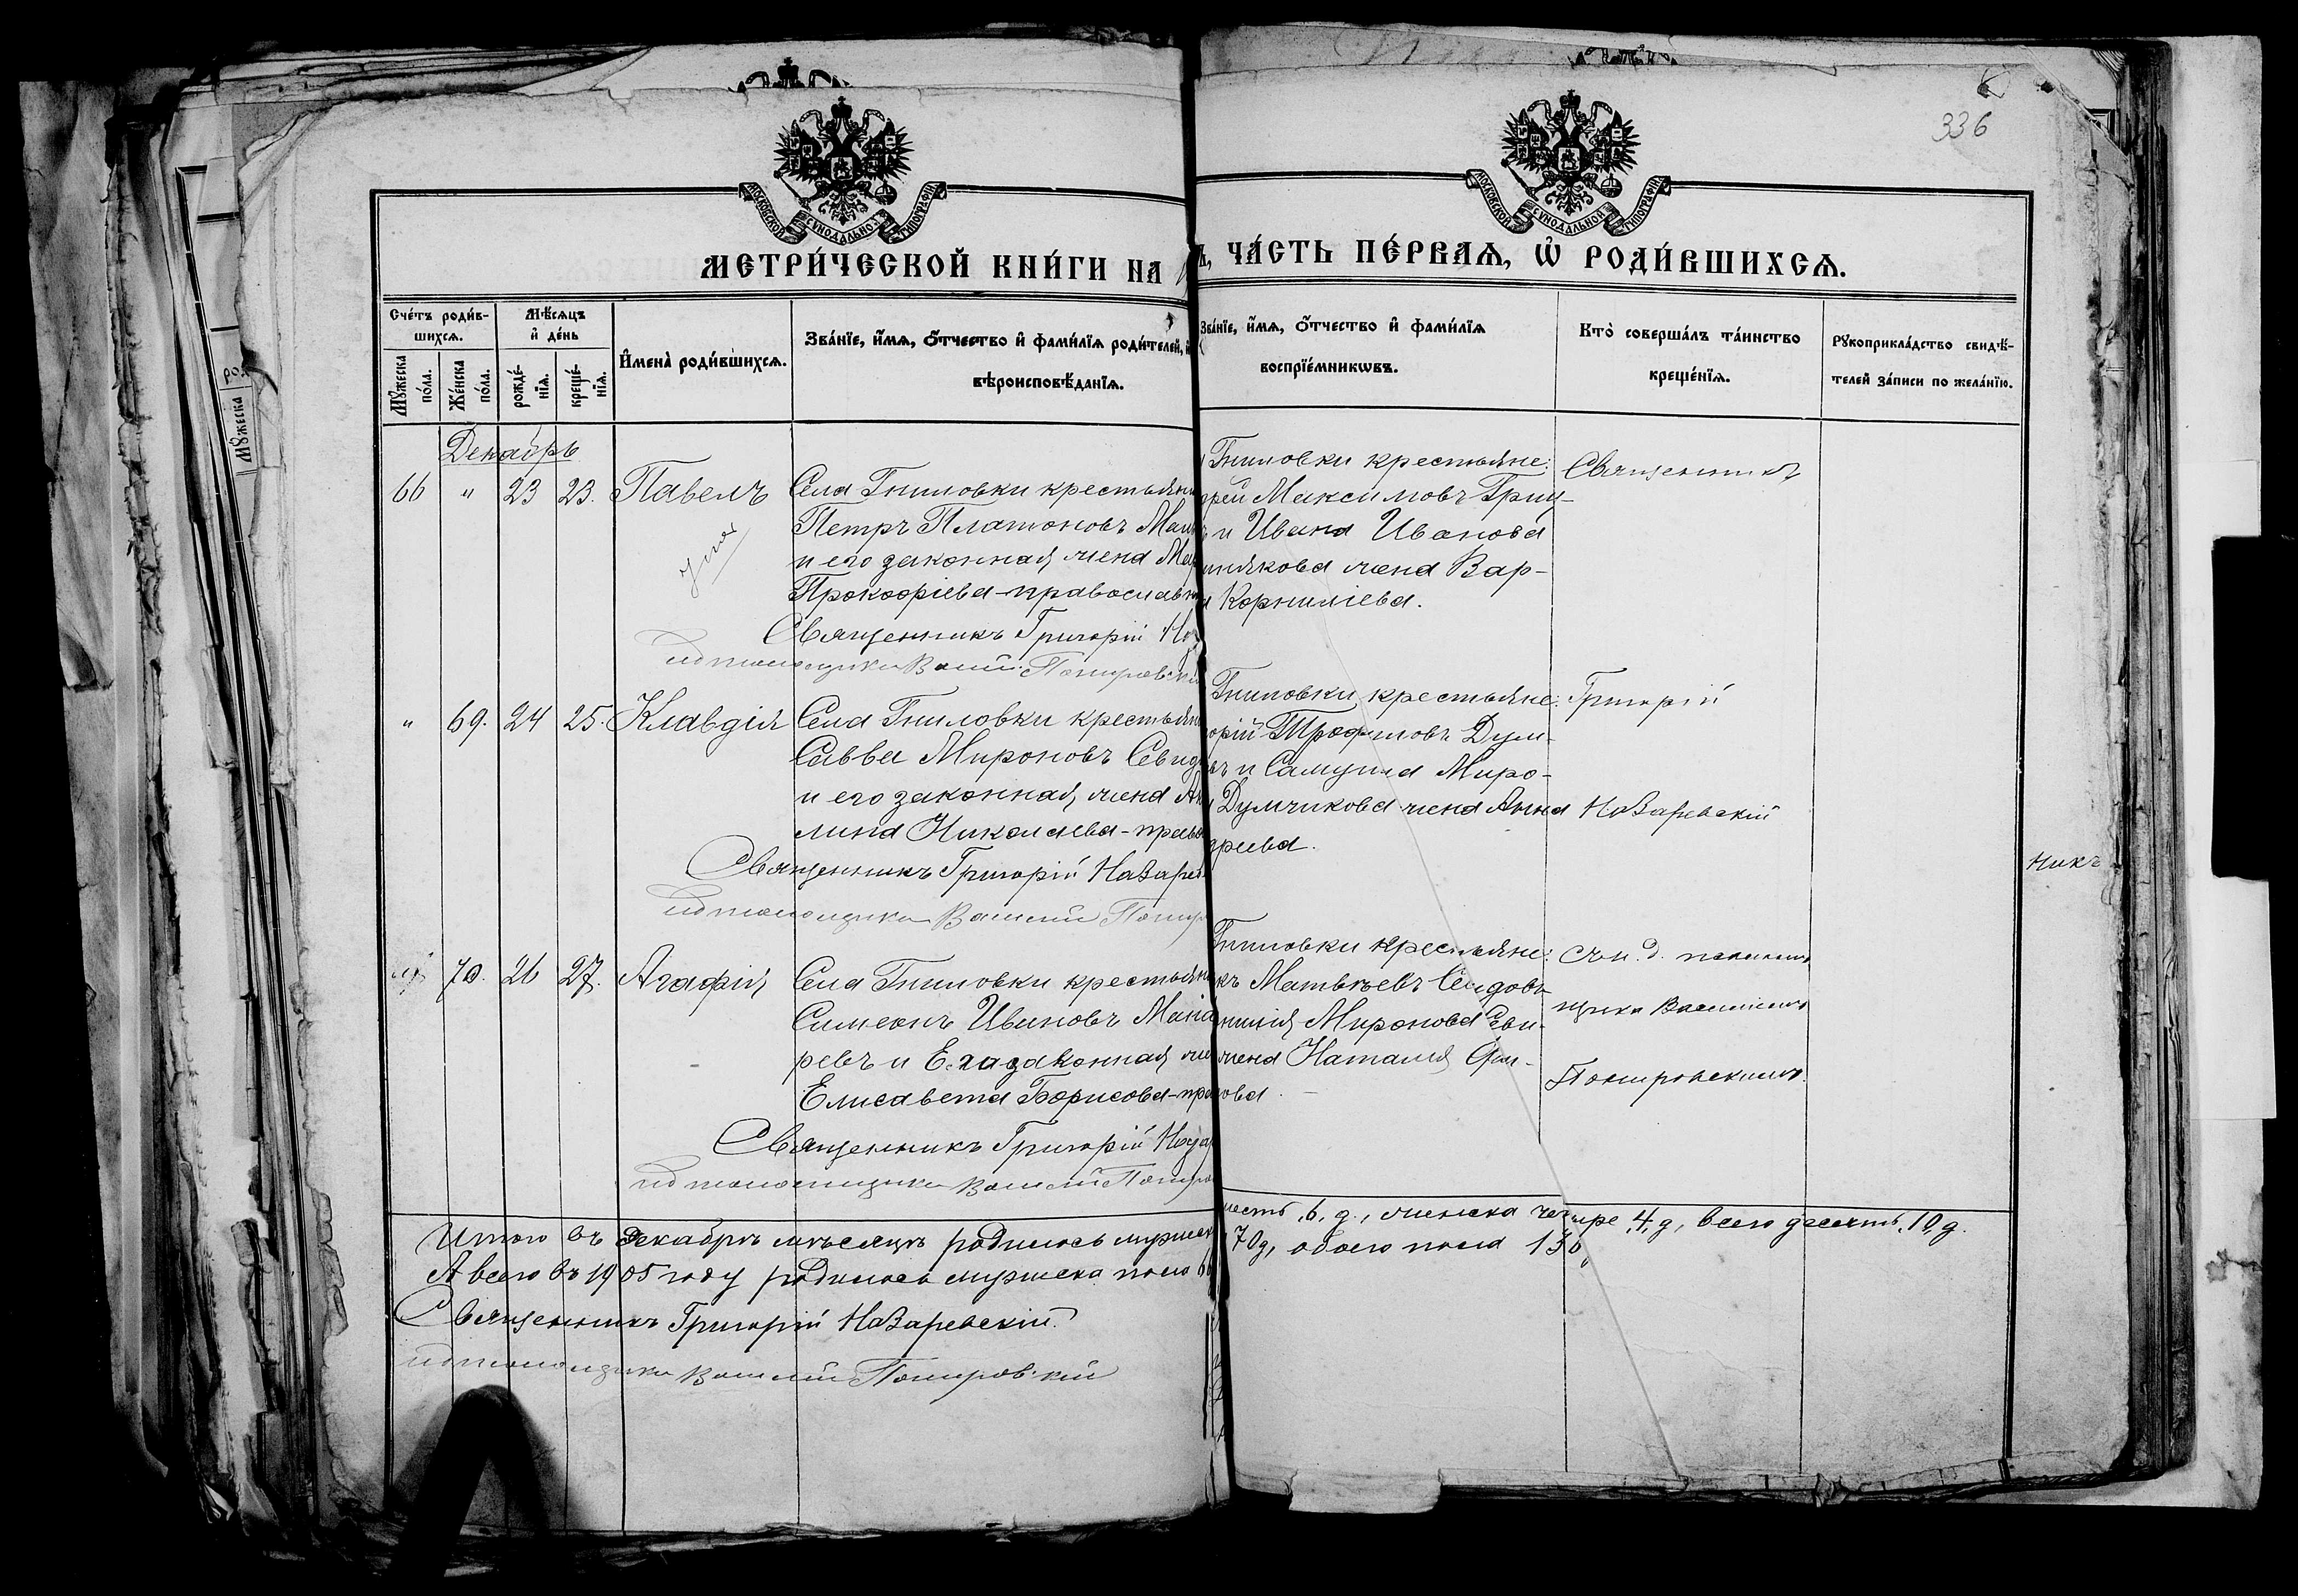 336
МОСКОВСКОЙ СѴНОДАЛЬНОЙ ТИПОГРАФІИ
МОСКОВСКОЙ СѴНОДАЛЬНОЙ ТИПОГРАФІИ
МЕТРИ́ЧЕСКОЙ КНИ́ГИ НА
Ъ, ЧА́СТЬ ПЕ́РВАѦ, Ѡ҆ РОДИ́ВШИХСѦ.
Сче́тъ роди́в-
шихсѧ.
Мѣ́сѧцъ
и҆ де́нь
Мꙋ́жеска
по́ла.
Же́нска
по́ла.
рожде́-
нїѧ.
креще́-
нїѧ.
И҆мена̀ роди́вшихсѧ.
Зва́нїе, и҆́мѧ, ѻ҆́тчество и҆ фами́лїѧ роди́телей, и҆
вѣроисповѣ́данїѧ.
Зва́нїе, и҆́мѧ, ѻ҆́тчество и҆ фами́лїѧ
воспрїе́мникѡвъ.
Кто̀ соверша́лъ та́инство
креще́нїѧ.
Рꙋкоприкла́дство свидѣ́-
телей за́писи по жела́нїю.
Мꙋ́жеска
Декабрь
66 " 23 23. Павелъ
Села Гниловки крестьянин
Петръ Платоновъ
и его законная жена
Прокофіева - православн
Священникъ Григорій
псаломщикъ Василій
Гниловки крестьяне:
рей Максимовъ Гриц-
и Ивана Иванова
жена Вар-
Корниліева.
Священникъ
" 69. 24 25. Клавдія
Села Гниловки крестьян
Савва Мироновъ Свид
и его законная жена
лина Николаева - право
Священникъ Григорій Назарев
псаломщикъ Василій
Гниловки крестьяне:
орій Трофимовъ Дум-
и Самуила Миро-
Думчикова жена Анна
дреева.
Григорій
Назаревскій
никъ
70. 26 27. Агафія
Села Гниловки крестьян
Симеонъ Ивановъ
ревъ и Его законная же
Елисавета Борисова - пра
Священникъ Григорій Наза
псаломщикъ Василій
Гниловки крестьяне:
Матвѣевъ
Миронова Сви-
жена Наталія
ова.
съ и. д. псалом-
щика Василіемъ
Итого въ Декабрѣ мѣсяцѣ родилось мужеск
шесть, 6, д., женска четыре, 4, д, всего десять, 10, д.
А всего въ 1905 году родилось мужеска пола 66
70 д, обоего пола 136,
Священникъ Григорій Назаревскій.
псаломщикъ Василій